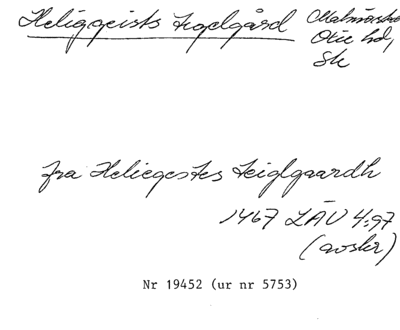 Heliggeists Tegelgård
Oxie hd,
Sk
fra Heliegestes Teiglgaardh
1467 LÄU 4:97
(avskr)
Nr 19452 (ur nr 5753)